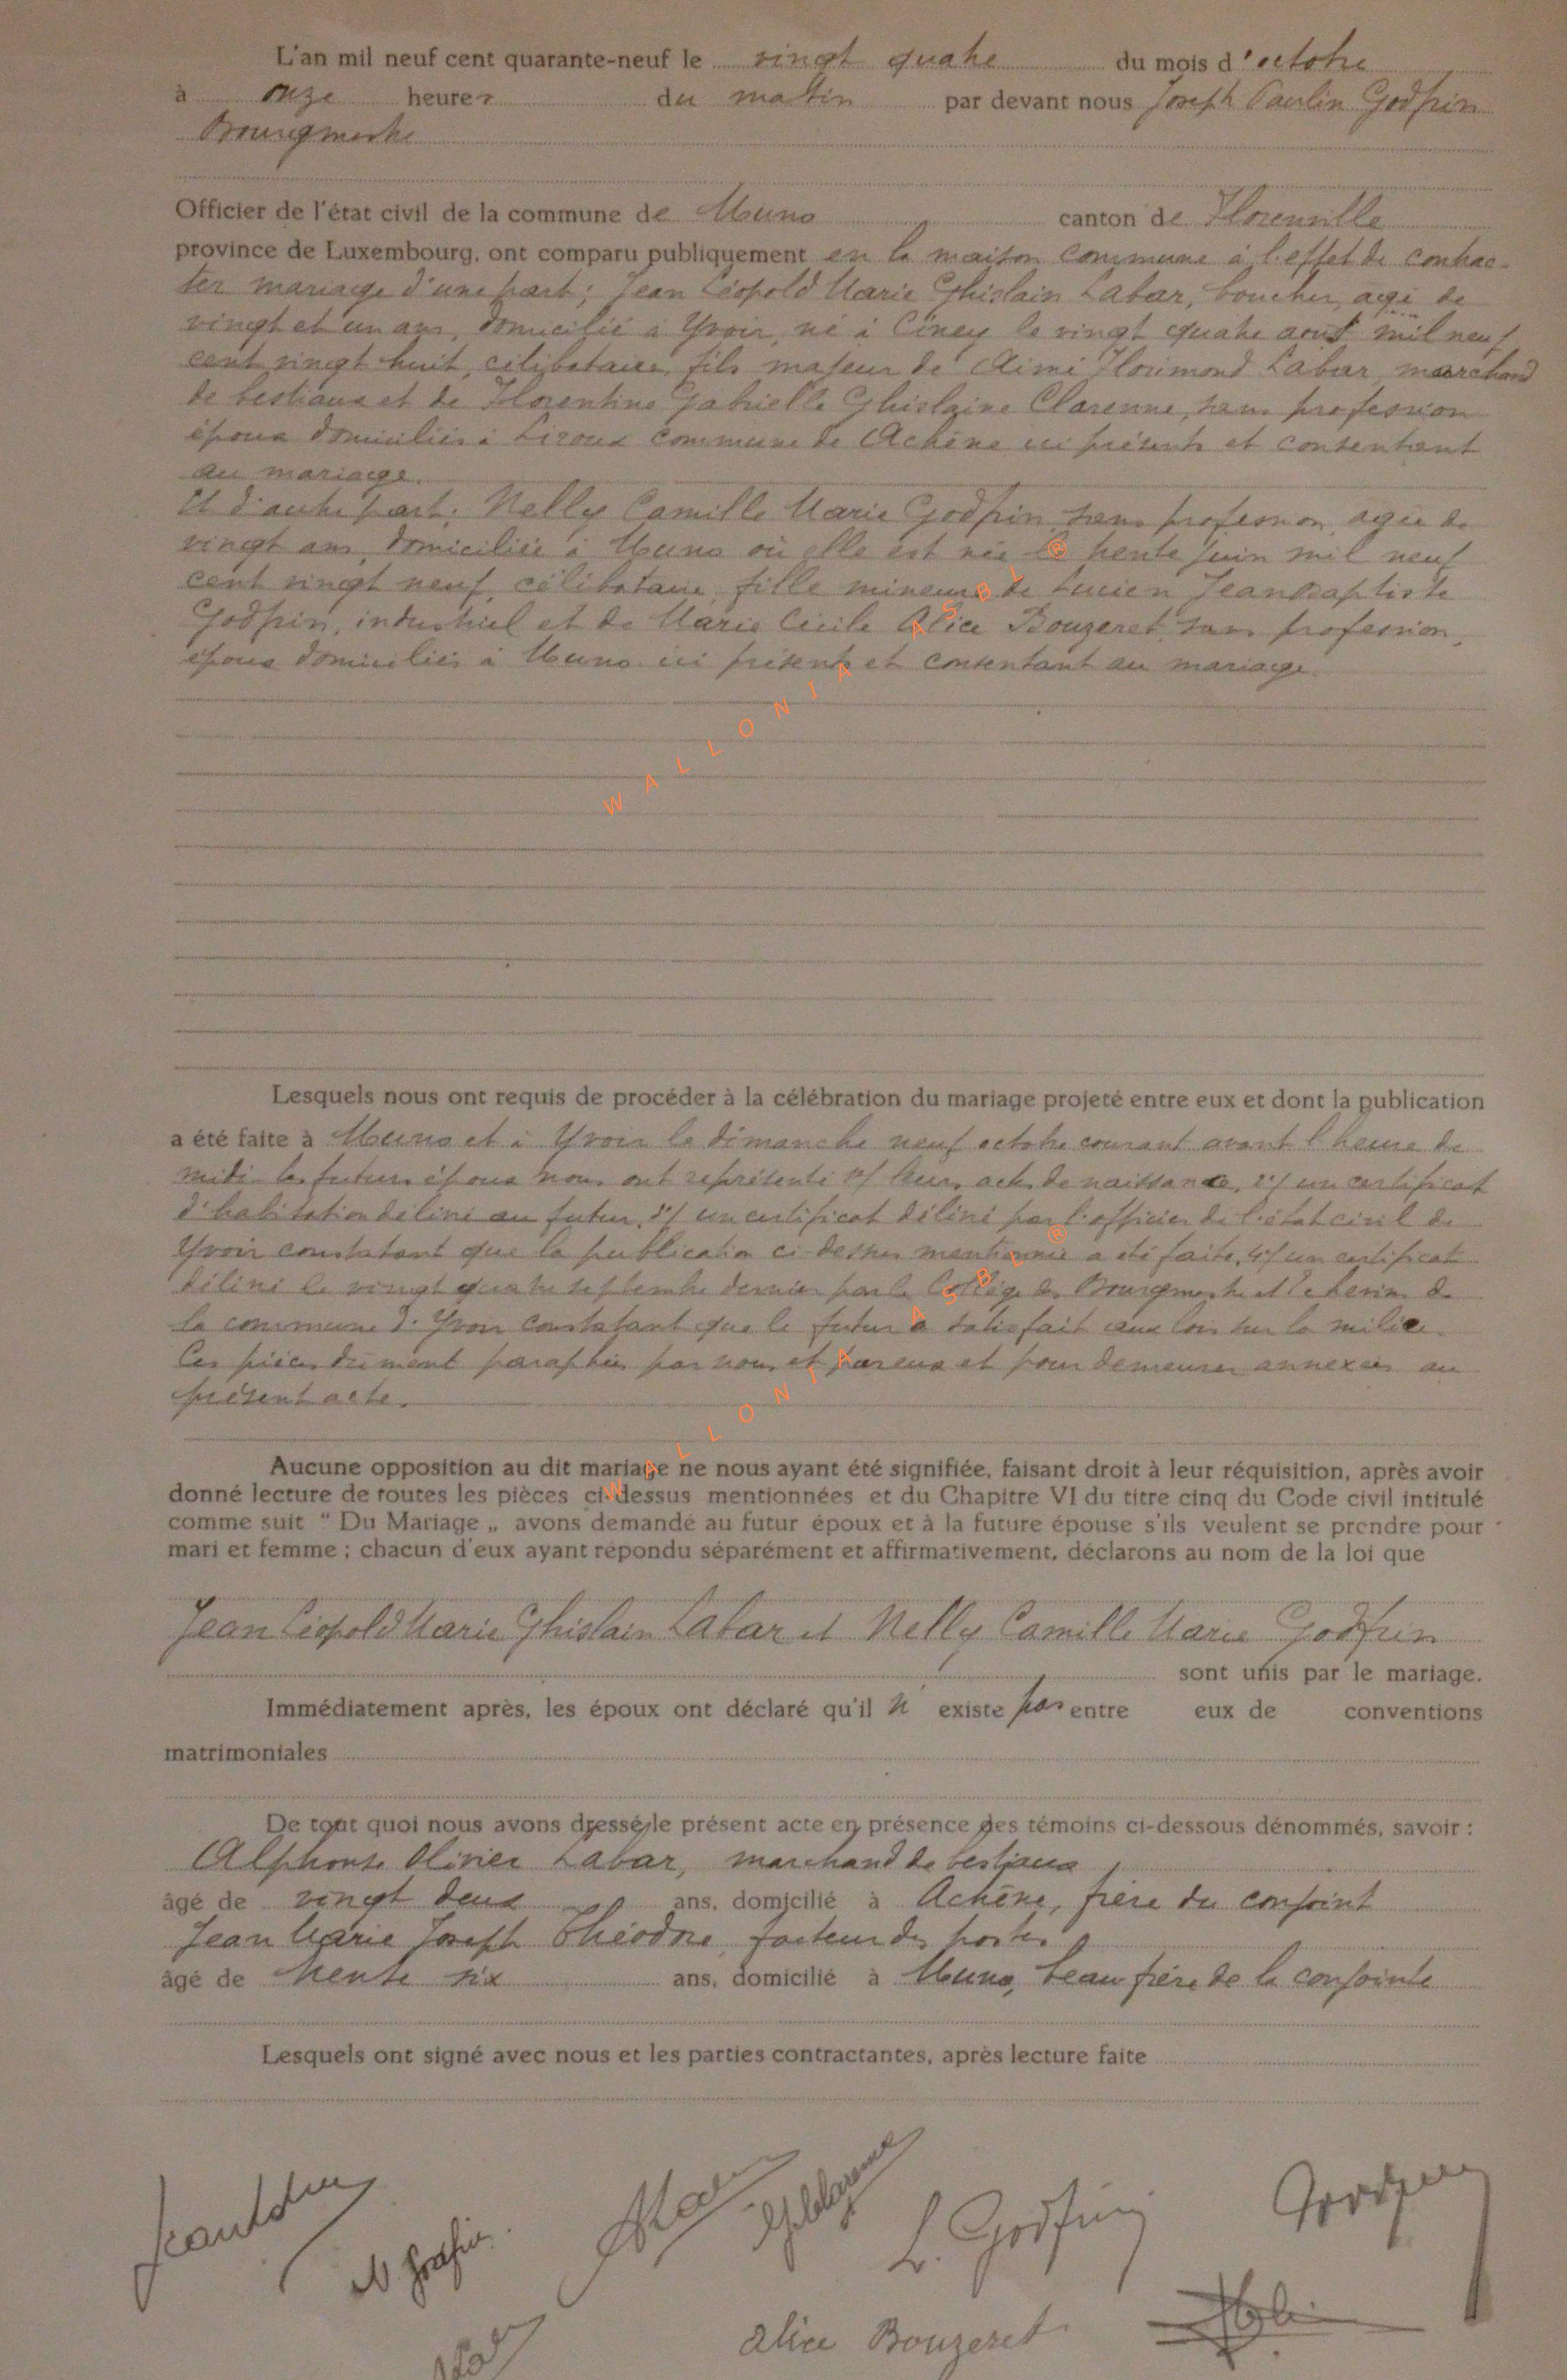 L'an mil neuf cent quarante-neuf le vingt quatre du mois d'octobre
à onze heures du matin par devant nous Joseph Paulin Godfrin
Bourgmestre
Officier de l'état civil de la commune de Muno canton de Florenville
province de Luxembourg, ont comparu publiquement en la maison commune à l'effet de contrac-
ter mariage d'une part; Jean Léopold Marie Ghislain Labar, boucher, agé de
vingt et un ans, domicilié à Yvoir, né à Ciney le vingt quatre aout mil neuf
cent vingt huit, célibataire, fils majeur de Aimé Florimond Labar, marchand
de bestiaux et de Florentine Gabrielle Ghislaine Clarenne, sans profession
époux domiciliés à Liroux commune de Achêne ici présents et consentant
au mariage.
Et d'autre part; Nelly Camille Marie Godfrin, sans profession, agée de
vingt ans, domiciliée à Muno où elle est née le trente juin mil neuf
cent vingt neuf, célibataire, fille mineure de Lucien Jean Baptiste
Godfrin, industriel et de Marie Cécile Alice Bouzeret, sans profession,
époux domiciliés à Muno ici présents et consentant au mariage.
WALLONIA ASBL ®
Lesquels nous ont requis de procéder à la célébration du mariage projeté entre eux et dont la publication
a été faite à Muno et à Yvoir le dimanche neuf octobre courant avant l'heure de
midi les futurs époux nous ont représenté 1°/ leurs actes de naissance, 2°/ un certificat
d'habitation délivré au futur, 3°/ un certificat délivré par l'officier de l'état civil de
Yvoir constatant que la publication ci-dessus mentionnée a été faite, 4°/ un certificat
délivré le vingt quatre septembre dernier par le Collège des Bourgmestre et Echevins de
la commune d'Yvoir constatant que le futur a satisfait aux lois sur la milice.
Ces pièces dûment paraphées par nous et pareux et pour demeurer annexées au
présent acte.
WALLONIA ASBL ®
Aucune opposition au dit mariage ne nous ayant été signifiée, faisant droit à leur réquisition, après avoir
donné lecture de toutes les pièces ci-dessus mentionnées et du Chapitre VI du titre cinq du Code civil intitulé
comme suit " Du Mariage „ avons demandé au futur époux et à la future épouse s'ils veulent se prendre pour
mari et femme ; chacun d'eux ayant répondu séparément et affirmativement, déclarons au nom de la loi que
Jean Léopold Marie Ghislain Labar et Nelly Camille Marie Godfrin
sont unis par le mariage.
Immédiatement après, les époux ont déclaré qu'il n' existe pas entre eux de conventions
matrimoniales
De tout quoi nous avons dressé le présent acte en présence des témoins ci-dessous dénommés, savoir :
Alphonse Olivier Labar, marchand de bestiaux
âgé de vingt deux ans, domicilié à Achêne, frère du conjoint
Jean Marie Joseph Théodore, facteur des postes
âgé de trente six ans, domicilié à Muno, beau frère de la conjointe
Lesquels ont signé avec nous et les parties contractantes, après lecture faite
N Godfrin
L. Godfrin
Alice Bouzeret